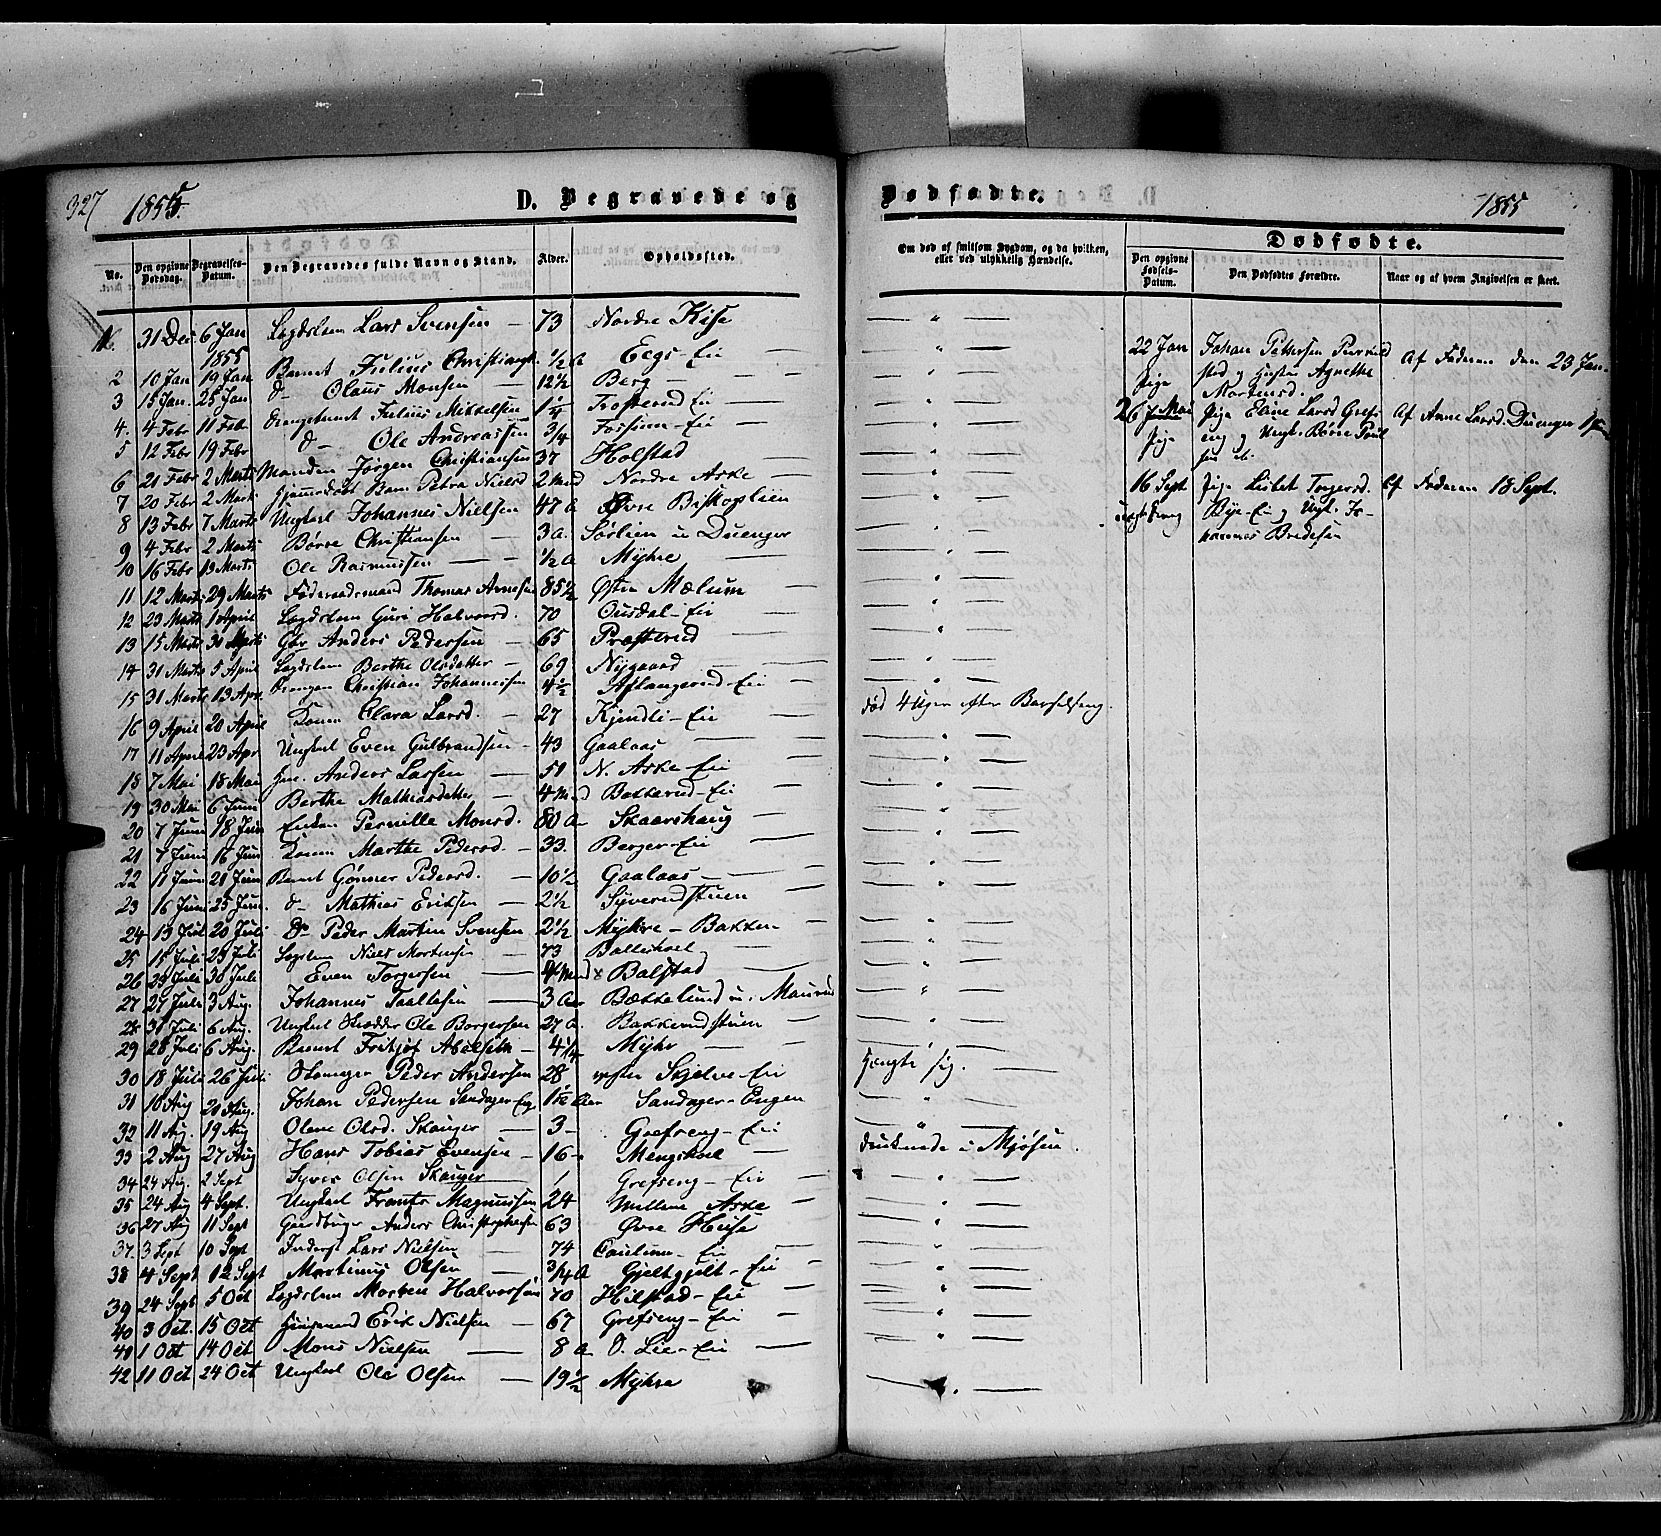 327 1855. D. Begravede og Dødfødte. 1855
No. Den opgivne Dødsdag. Begravelses-Datum. Den Begravedes fulde Navn og Stand. Alder. Opholdssted. Om død af smitsom Sygdom, og da hvilken, eller ved ulykkelig Hændelse. Dødfødte.
Den opgivne Fødsels-Datum. Den Dødfødtes Forældre. Naar og af hvem Angivelsen er skeet.
31 Dec 6 Jan Lars Svensen — 73 Nordre Kise — " —
1855
2 10 Jan 19 Jan Barnet Julius 1/2 A Eegs-Ei — — " —
3 15 Jan. 25 Jan d— Olaus Monsen — 12 1/2 Berg — — " —
4. 4 Febr 11 Febr Julius Mikkelsen 1 1/4 Ei — — " —
5 12 Febr 19 Febr d— Ole Andreassen 3/4 Fossum-Ei — — " —
6 21 Febr 2 Marts Manden Jørgen Christiansen 37 Holstad — — " —
7 20 Febr 2 Mart. Petra Nielsd 2 Mnd Nordre Aske — — " —
8 13 Febr 7 Marts Ungkarl Johannes Nielsen 47 A Øvre Biskoplien — " —
9 4 Febr 2 Marts Børre Christiansen — 3 a. Sørlien u Duenger — " —
10 16 Febr 13 Marts Ole Rasmussen — 1/2 A Myhre — — " —
11 12 Marts 29 Marts Føderaadsmand Thomas Arnesen 85 1/2 Østre Mælum — — " —
12 23 Marts 1 April Guri Halvorsd. 70 Ousdal-Ei — — " —
13 15 Marts 30 Marts Anders Pedersen — 65 Præsterud — — " —
14 31 Marts 5 April Berthe Olsdatter — 69 Nygaard — — " —
15 31 Marts 13 Apr. Drengen Christian Johannessen 4 1/2 Aslangerud-Ei — — " —
16 9 April 20 April Konen Clara Larsd. — 27 Kjendli-Ei — død 4 Uger efter Barselseng.
17 11 April 23 Apr Ungkarl Even Gulbrandsen — 43 Gaalaas — — " —
18 7 Mai 18 Mai Anders Larsen — 51 N. Aske-Ei — — " —
19 30 Mai 6 Juni Berthe Mathiasdatter — 4 Mnd Batterud-Ei — — " —
20 7 Juni 18 Jun Enken Pernille Monsd. 80 A Skaarshaug — — " —
21 7 Juni 16 Jun Konen Marthe Pedersd. — 33. Berger-Ei — — " —
22 11 Juni 21 Jun Barnet Gønner Pedersd. — 10 1/2 Gaalaas — — " —
23 16 Juni 25 Jun. d— Mathias Eriksen — 2 1/2 Syverudstuen — " —
24 13 Jul 20 Juli D— Peder Martin Svensen 2 1/2 Myhre-Bakken — " —
25 15 Juli 23 Juli Niels Mortensen — 73 Ballishoel — — " —
26 29 Juli 30 Juli Even Torgersen — 4 Mnd Balstad — — " —
27 29 Juli 3 Aug. Johannes — 3 Aar Bættelund u. Maurud — " —
28 31 Juli 6 Aug. Ungkarl Skrædder Ole Borgersen 27 a. Bakkerudstuen — — " —
29 28 Juli 6 Aug. Barnet Fritjof — 4 1/4 Myhr — — " —
30 18 Juli 26 Juli Peder Andersen 28 Skjelve-Ei hængte sig. —
31 10 Aug 20 Aug. Johan Pedersen Sandager-Eng. Sandager-Engen — " —
32 11 Aug. 19 Aug Olene Olsd. Skanger — 3 — Grefseng-Ei — — " —
33 2 Aug 27 Aug Hans Tobias Evensen — 16 — Mengshoel — druknede i Mjøsen.
34 24 Aug. 2 Sept Syver Olsen Skanger — 1 Grefseng-Ei — — " —
35 24 Aug 4 Sept. Ungkarl Frants Magnussen 24 Mellem Aske — — " —
36 27 Aug 11 Sept Gaardbruger Anders Christophersen 63 Øvre Huse — — " —
37. 3 Sept 10 Sept Inderst Lars Nielsen — 74 Ei — — " —
38 4 Sept 12 Sept Martinus Olsen — 3/4 A Ei — — " —
39 24 Sept 5 Oct Morten Halvorsen 70 Hilstad-Ei — — " —
40 3 Oct. 15 Oct Huusmand Erik Nielsen — 67 Grefseng-Ei — — " —
41 1 Oct 14 Oct Mons Nielsen — 8 A Ø. Lie-Ei — — " —
42 11 Oct 24 Oct Ungkarl Ole Olsen — 19 1/2 Myhre — —
22 Jan Johan Pettersen Af Faderen den 23 Jan.
Pige og Hustru Agnethe
Mortensd.
26 Mai Pige Eline Larsd Gref- Af Anne Larsd. Duenger
Pige eng og Ungk. Børre Poul
16 Sept Pige Lisbet Torgersd. Af Faderen 18 Sept.
Bye-Ei og Ungk. Jo-
hannes Bredesen